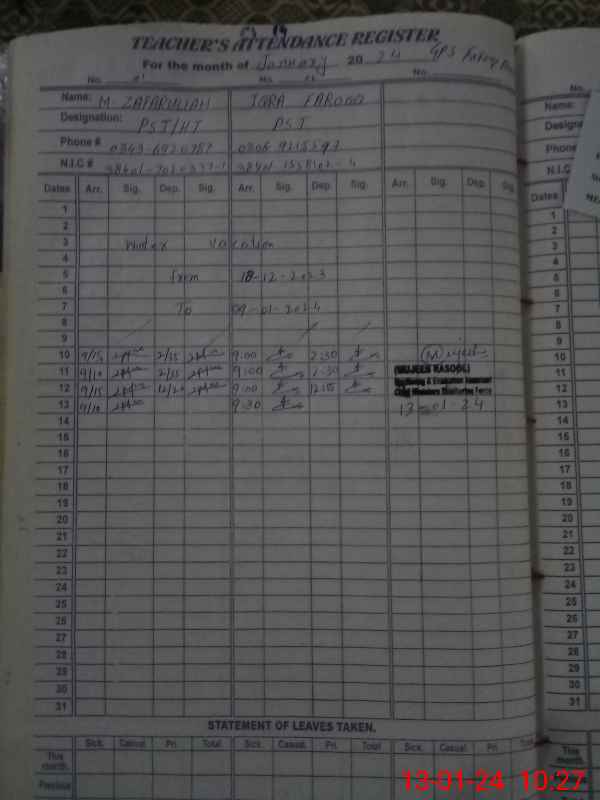 TEACHER'S ATTENDANCE REGISTER
For the month of January 2024 GPS
No. 01 No. 02 No.
Name: M. ZAFARULLAH IQRA FAROOQ
Designation: PST/HT PST
Phone #
N.I.C #
Dates Arr. Sig. Dep. Sig. Arr. Sig. Dep. Sig. Arr. Sig. Dep. Sig.
1
2
3 Winter Vacation
4
5 from 18-12-2023
6
7 To 09-01-2024
8
9
10 9/15 2/35 9:00 2:30 Mujeeb
11 9/10 2/35 9:00 2:30 (MUJEEB RASOOL)
12 9/15 12/20 9:00 Monitoring & Evaluation Assistant
Chief Ministers Monitoring Force
13 9/10 9:30 13-01-24
14
15
16
17
18
19
20
21
22
23
24
25
26
27
28
29
30
31
STATEMENT OF LEAVES TAKEN.
Sick. Casual. Pri. Total Sick. Casual. Pri. Total Sick. Casual. Pri. Total
This month.
Previous
No.
Name:
Phone
N.I.C
Dates
1
2
3
4
5
6
7
8
9
10
11
12
13
14
15
16
17
18
19
20
21
22
23
24
25
26
27
28
29
30
31
This month.
13-01-24 10:27